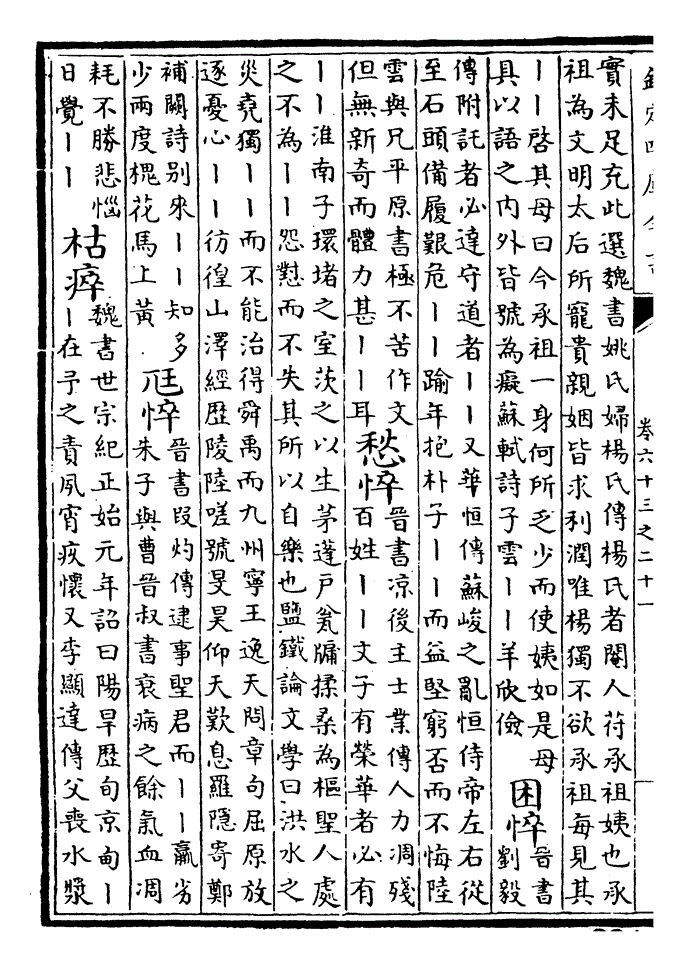 欽定四庫全書
卷六十三之二十一
實未足充此選魏書姚氏婦楊氏傳楊氏者閹人苻承祖姨也承
祖為文明太后所寵貴親姻皆求利潤唯楊獨不欲承祖每見其
丨丨啓其母曰今承祖一身何所乏少而使姨如是母
具以語之内外皆號為癡蘇軾詩子雲丨丨羊欣儉
困悴
晉書
劉毅
傳附託者必達守道者丨丨又華恒傳蘇峻之亂恒侍帝左右從
至石頭備履艱危丨丨踰年抱朴子丨丨而益堅窮否而不悔陸
雲與兄平原書極不苦作文
但無新奇而體力甚丨丨耳
愁悴
晉書凉後主士業傳人力凋殘
百姓丨丨文子有榮華者必有
丨丨淮南子環堵之室茨之以生茅蓬戶瓮牖揉桑為樞聖人處
之不為丨丨怨懟而不失其所以自樂也鹽鐵論文學曰洪水之
災堯獨丨丨而不能治得舜禹而九州寧王逸天問章句屈原放
逐憂心丨丨彷徨山澤經歴陵陸嗟號旻昊仰天歎息羅隠寄鄭
補闕詩别來丨丨知多
少兩度槐花馬上黃
尫悴
晉書段灼傳逮事聖君而丨丨羸劣
朱子與曹晉叔書衰病之餘氣血凋
耗不勝悲惱
日覺丨丨
枯瘁
魏書世宗紀正始元年詔曰陽旱歴旬京甸丨
丨在予之責夙宵疚懷又李顯達傳父喪水漿